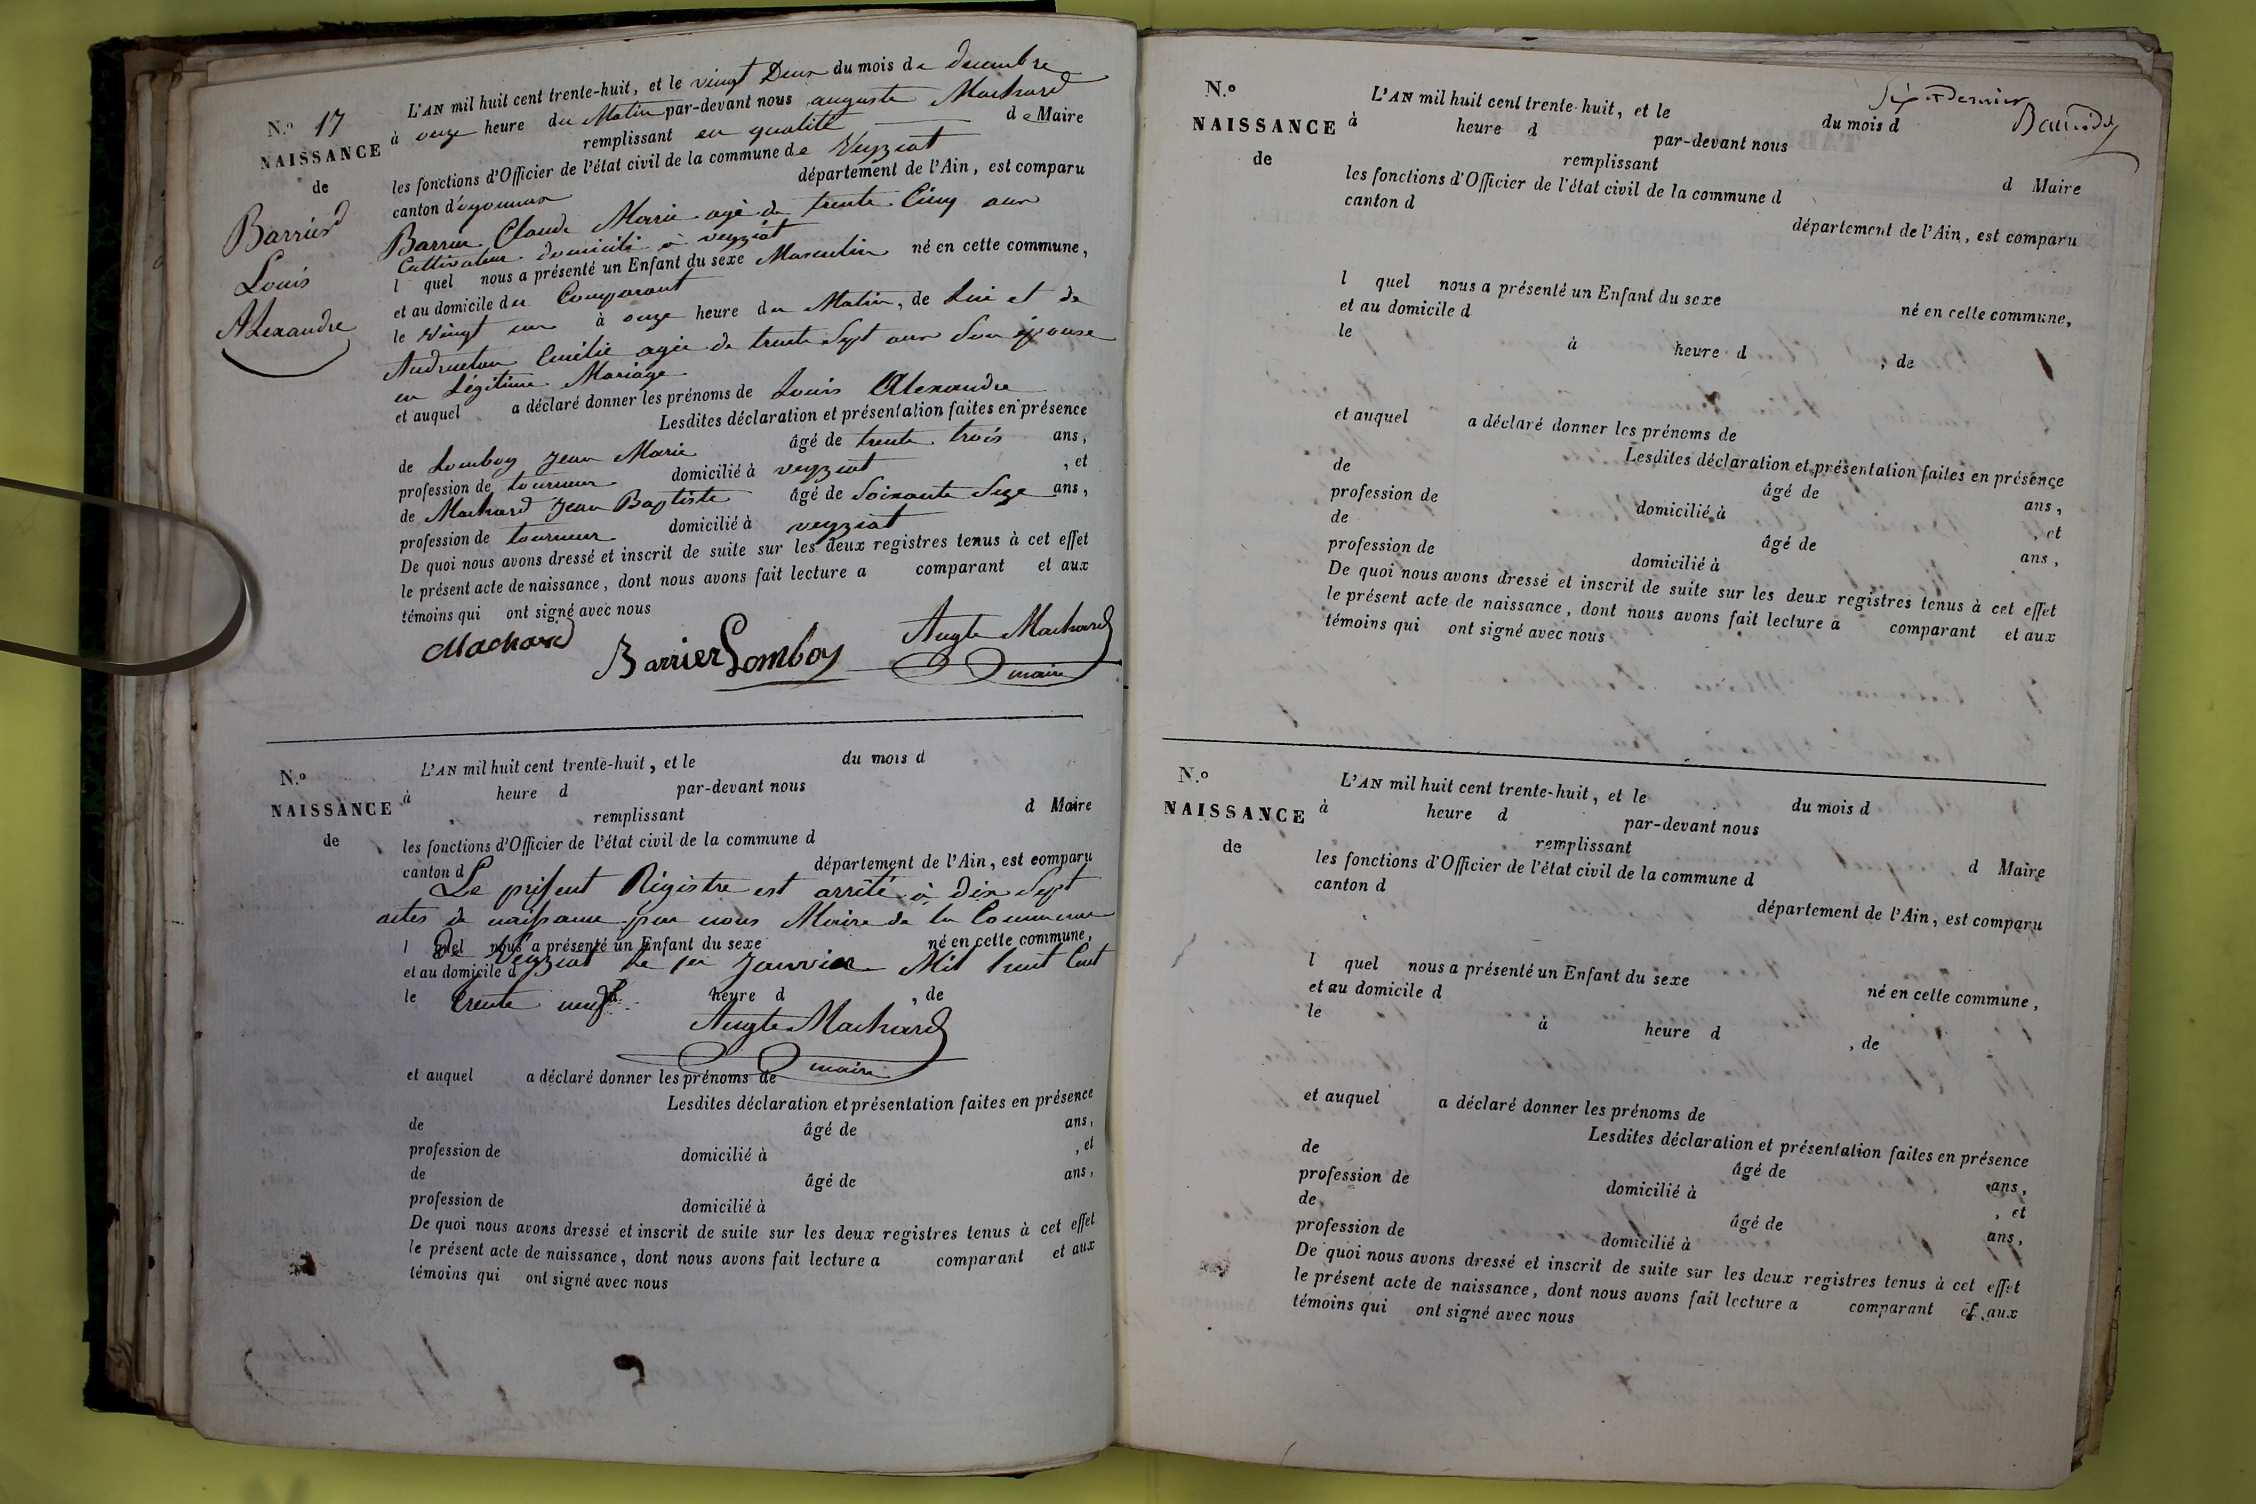 N.o 17
NAISSANCE
de
Barrier
Louis
Alexandre
L'AN mil huit cent trente-huit, et le vingt Deux du mois de decembre
à onze heure du Matin par-devant nous auguste Machard
remplissant en qualité de Maire
les fonctions d'Officier de l'état civil de la commune de Veyziat
canton d'oyonnax département de l'Ain, est comparu
Barrier Claude Marie agé de trente Cinq ans
Cultivateur domicilié à veyziat
l quel nous a présenté un Enfant du sexe Masculin né en cette commune,
et au domicile du Comparant
le vingt un à onze heure du Matin, de Lui et de
Emélie agée de trente Sept ans Son épouse
en Légitime Mariage
et auquel a déclaré donner les prénoms de Louis Alexandre
Lesdites déclaration et présentation faites en présence
de Lomboy Jean Marie âgé de trente trois ans,
profession de tourneur domicilié à veyziat , et
de Machard Jean Baptiste âgé de Soixante Seze ans,
profession de tourneur domicilié à veyziat
De quoi nous avons dressé et inscrit de suite sur les deux registres tenus à cet effet
le présent acte de naissance, dont nous avons fait lecture a comparant et aux
témoins qui ont signé avec nous
Machard Barrier Lomboy Augte Machard
maire
N.o
NAISSANCE
de
L'AN mil huit cent trente-huit, et le du mois d
à heure d par-devant nous
remplissant d Maire
les fonctions d'Officier de l'état civil de la commune d
canton d département de l'Ain, est comparu
Le présent Régistre est arrêté à Dix Sept
actes de naissance par nous Maire de la Commune
l quel nous a présenté un Enfant du sexe né en cette commune,
De Veyziat Le 1er Janvier Mil huit Cent
et au domicile d
le heure d , de
trente neuf
Augte Machard
maire
et auquel a déclaré donner les prénoms de
Lesdites déclaration et présentation faites en présence
de âgé de ans,
profession de domicilié à , et
de âgé de ans,
profession de domicilié à
De quoi nous avons dressé et inscrit de suite sur les deux registres tenus à cet effet
le présent acte de naissance, dont nous avons fait lecture a comparant et aux
témoins qui ont signé avec nous
dernier
N.o
NAISSANCE
de
L'AN mil huit cent trente-huit, et le du mois d
à heure d par-devant nous
remplissant d Maire
les fonctions d'Officier de l'état civil de la commune d
canton d département de l'Ain, est comparu
l quel nous a présenté un Enfant du sexe né en cette commune,
et au domicile d
le à heure d , de
et auquel a déclaré donner les prénoms de
Lesdites déclaration et présentation faites en présence
de âgé de ans,
profession de domicilié à , et
de âgé de ans,
profession de domicilié à
De quoi nous avons dressé et inscrit de suite sur les deux registres tenus à cet effet
le présent acte de naissance, dont nous avons fait lecture a comparant et aux
témoins qui ont signé avec nous
N.o
NAISSANCE
de
L'AN mil huit cent trente-huit, et le du mois d
à heure d par-devant nous
remplissant d Maire
les fonctions d'Officier de l'état civil de la commune d
canton d département de l'Ain, est comparu
l quel nous a présenté un Enfant du sexe né en cette commune,
et au domicile d
le à heure d , de
et auquel a déclaré donner les prénoms de
Lesdites déclaration et présentation faites en présence
de âgé de ans,
profession de domicilié à , et
de âgé de ans,
profession de domicilié à
De quoi nous avons dressé et inscrit de suite sur les deux registres tenus à cet effet
le présent acte de naissance, dont nous avons fait lecture a comparant et aux
témoins qui ont signé avec nous